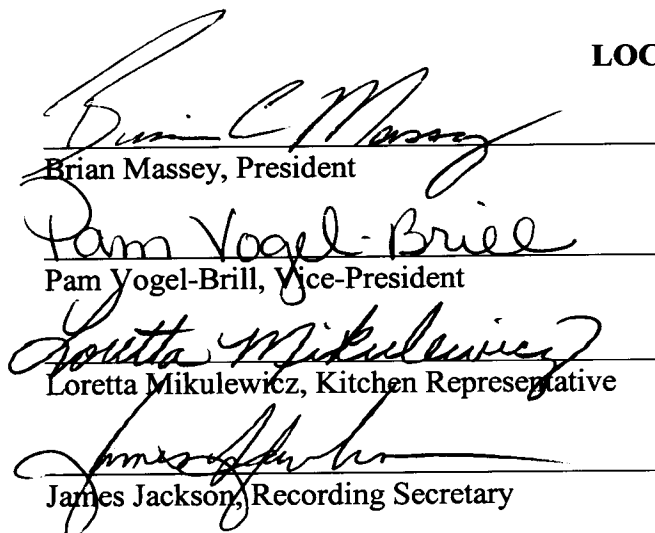 LOC
Brian C Massey
Brian Massey, President
Pam Vogel-Brill
Pam Vogel-Brill, Vice-President
Loretta Mikulewicz
Loretta Mikulewicz, Kitchen Representative
James Jackson
James Jackson, Recording Secretary